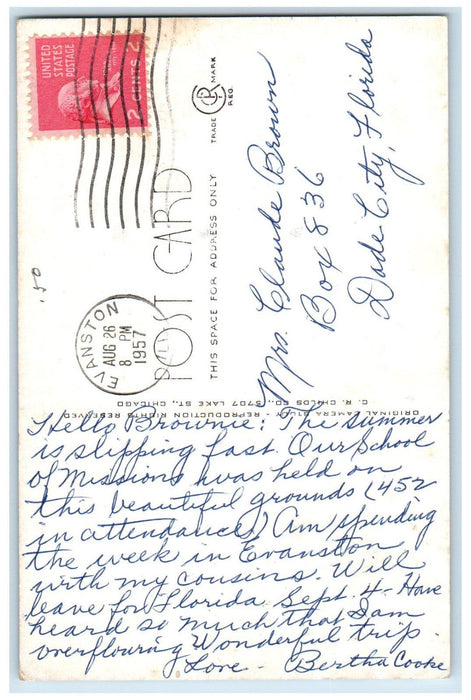 UNITED
STATES
POSTAGE
2 CENTS 2
EVANSTON
AUG 26
8 PM
1957
.50
POST CARD
THIS SPACE FOR ADDRESS ONLY
TRADE MARK
REG.
Mrs. Claude Brown
Box 836
Dade City, Florida
ORIGINAL CAMERA STUDY - REPRODUCTION RIGHTS RESERVED
C. R. CHILDS CO., 5707 LAKE ST., CHICAGO
Hello Brownie: The summer
is slipping fast. Our School
of Missions was held on
this beautiful grounds (452
in attendance) Am spending
the week in Evanston
with my cousins. Will
leave for Florida Sept. 4 - Have
heard so much that I am
overflouring Wonderful trip.
Love - Bertha Cooke